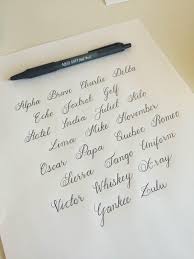 Alpha Bravo Charlie Delta
Echo Foxtrot Golf
Hotel India Juliet Kilo
Lima Mike November
Oscar Papa Quebec Romeo
Sierra Tango Uniform
Victor Whiskey X-ray
Yankee Zulu